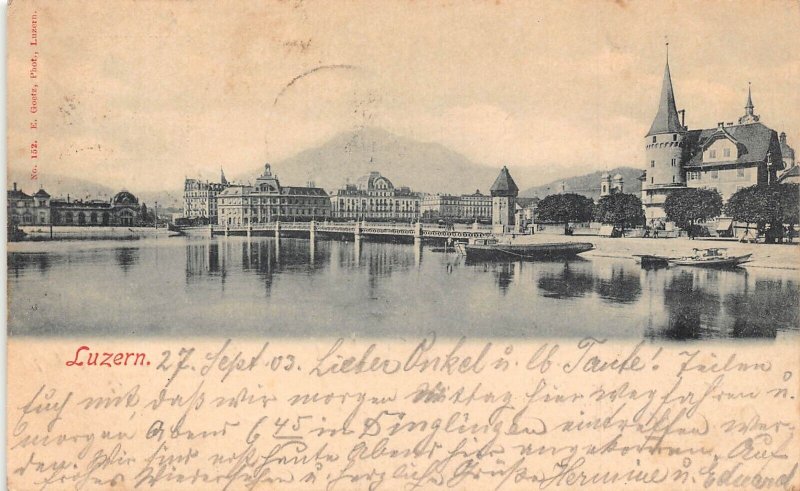 No. 152. E. Goetz, Phot., Luzern.
Luzern. 27 Sept 03. Lieber Onkel u. lb Tante! Teilen
Euch mit, daß wir morgen Mittag hier wegfahren u.
morgen Abend 6 45 in Dinglingen eintreffen wer-
den. Wir sind erst heute Abend hier angekommen. Auf
frohes Wiedersehen u. herzliche Grüße Hermine u. Eduard